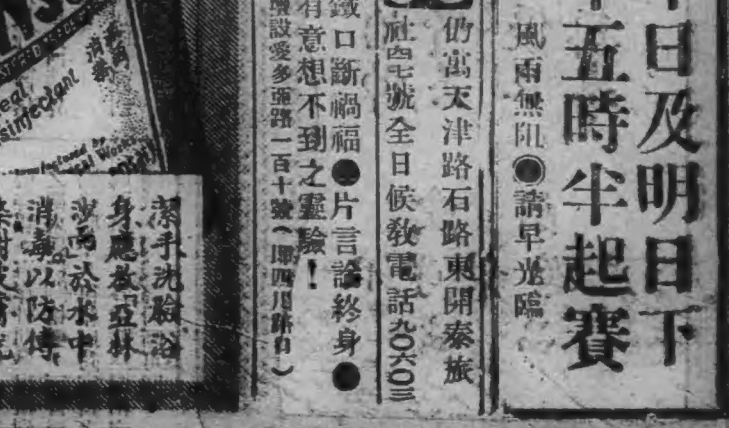 日及明日下
五時半起賽
風雨無阻●請早光臨
仍寓天津路石路東開泰旅
社四號全日候敎電話九〇六〇三
鐵口斷禍福●片言論終身●
有意想不到之靈驗！
壇設愛多亞路一百十號（卽四川路口）
消毒
Disinfectant
潔手洗臉浴
身應放亞林
沙而於水中
消毒以防傳
染